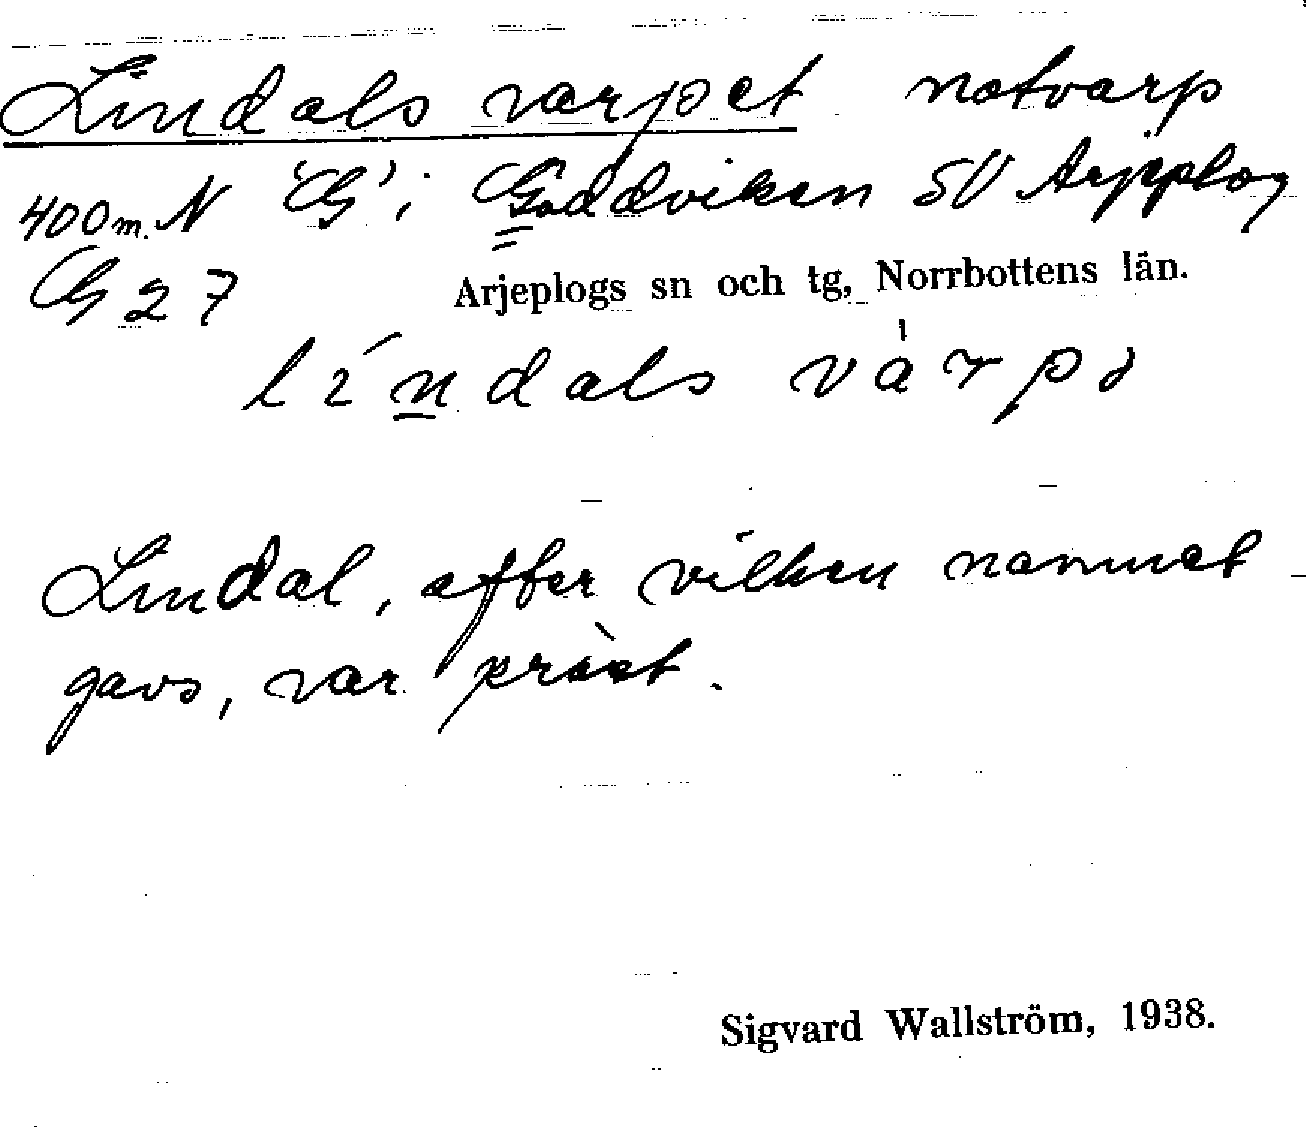 Lindals varpet notvarp
400 m. N 'G' i Gaddviken SV Arjeplog
G 27
Arjeplogs sn och tg, Norrbottens län.
líndals vàrpə
Lindal, efter vilken namnet
gavs, var präst.
Sigvard Wallström, 1938.